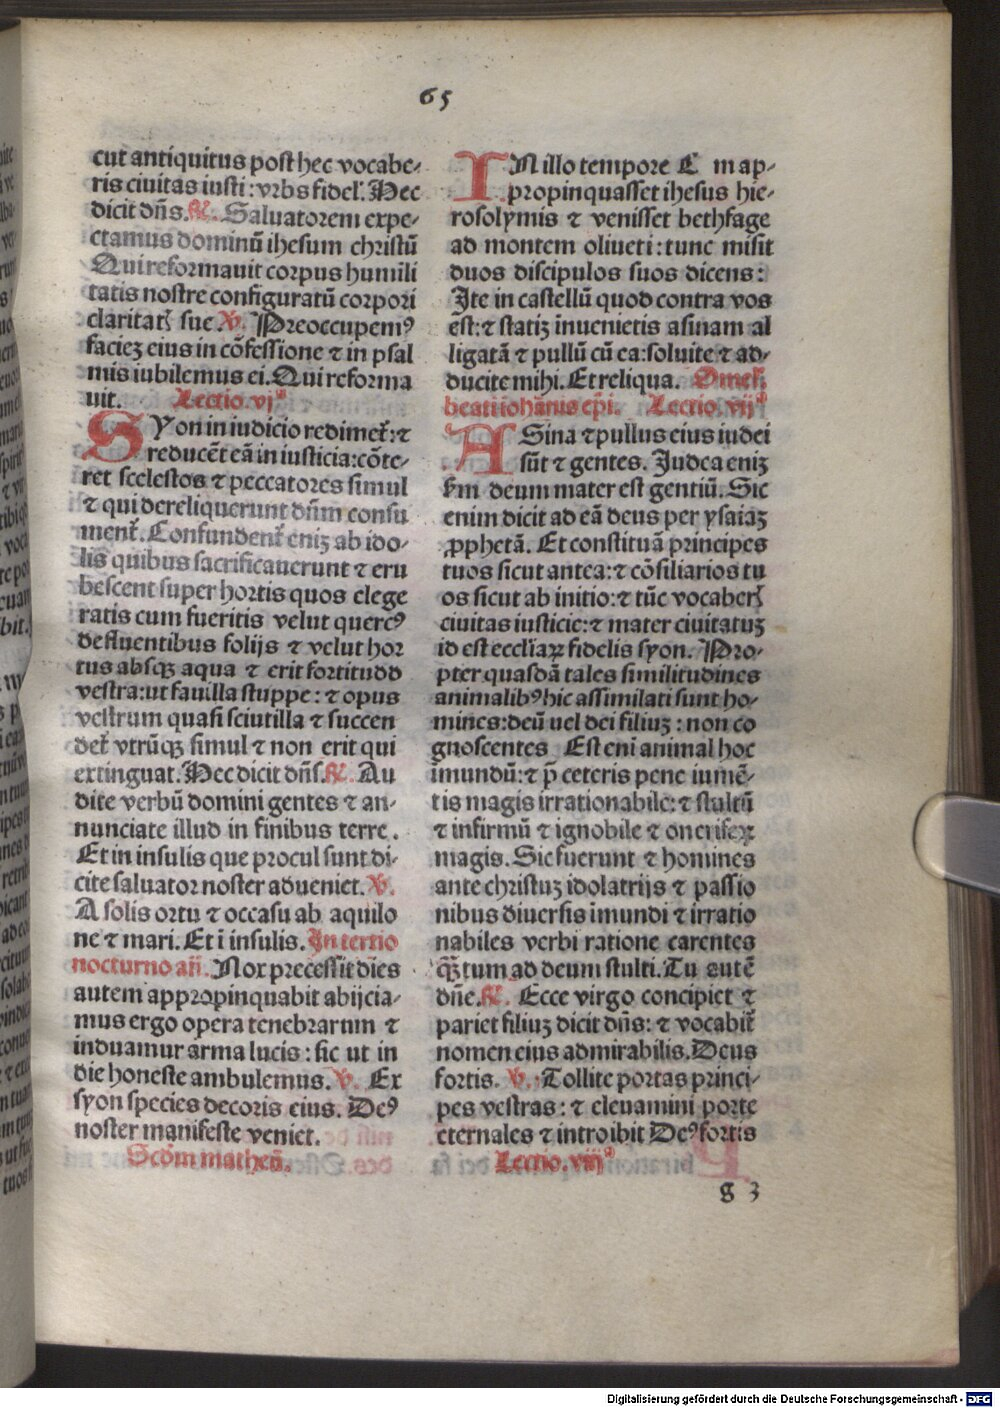 65
cut antiquitus post hec vocabe⸗
ris ciuitas iusti : vrbs fidel'. Hec
dicit dñs. ℟. Saluatorem expe⸗
ctamus dominū ihesum christū
Qui reformauit corpus humili
tatis nostre configuratū corpori
claritatꝭ sue. ℣. Preoccupemꝰ
faciez eius in cōfessione ⁊ in psal
mis iubilemus ei. Qui reforma
uit. Lectio. vjª
SYon in iudicio redimet̄: ⁊
reducēt eā in iusticia: cōte⸗
ret scelestos ⁊ peccatores simul
⁊ qui dereliquerunt dūm consu
ment̄. Confundent̄ eniz ab ido⸗
lis quibus sacrificauerunt ⁊ eru
bescent super hortis quos elege
ratis cum fueritis velut quercꝰ
defluentibus folijs ⁊ velut hor
tus absqz aqua ⁊ erit fortitudo
vestra: ut fauilla stuppe: ⁊ opus
vestrum quasi sciutilla ⁊ succen
det̄ vtrūqz simul ⁊ non erit qui
extinguat. Hec dicit dñs. ℟. Au
dite verbū domini gentes ⁊ an⸗
nunciate illud in finibus terre.
Et in insulis que procul sunt di⸗
cite saluator noster adueniet. ℣.
A solis ortu ⁊ occasu ab aquilo
ne ⁊ mari. Et ī insulis. In tertio
nocturno añ. Nox precessit dies
autem appropinquabit abijcia⸗
mus ergo opera tenebrarum ⁊
induamur arma lucis: sic ut in
die honeste ambulemus. ℣. Ex
syon species decoris eius. Deꝰ
noster manifeste veniet.
Scd'm matheū.
IN illo tempore C m ap⸗
propinquasset ihesus hie⸗
rosolymis ⁊ venisset bethfage
ad montem oliueti: tunc misit
duos discipulos suos dicens:
Ite in castellū quod contra vos
est: ⁊ statiz inuenietis asinam al
ligatā ⁊ pullū cū ea: soluite ⁊ ad⸗
ducite mihi. Et reliqua. Omel'.
beati iohānis ep̄i. Lectio. vijª
ASina ⁊ pullus eius iudei
sūt ⁊ gentes. Judea eniz
fm deum mater est gentiū. Sic
enim dicit ad eā deus per ysaiaz
ꝓphetā. Et constituā principes
tuos sicut antea: ⁊ cōsiliarios tu
os sicut ab initio: ⁊ tūc vocaberꝭ
ciuitas iusticie: ⁊ mater ciuitatuz
id est eccliaꝝ fidelis syon. Pro⸗
pter quasdā tales similitudines
animalibꝰ hic assimilati sunt ho⸗
mines: deū uel dei filiuz: non co
gnoscentes Est eni animal hoc
īmundū: ⁊ p̄ ceteris pene iumē⸗
tis magis irrationabile: ⁊ stultū
⁊ infirmū ⁊ ignobile ⁊ oneriferꝝ
magis. Sic fuerunt ⁊ homines
ante christuz idolatrijs ⁊ passio
nibus diuersis īmundi ⁊ irratio
nabiles verbi ratione carentes
q̄ꝫtum ad deum stulti. Tu autē
dñe. ℟. Ecce virgo concipiet ⁊
pariet filiuz dicit dñs: ⁊ vocabit̄
nomen eius admirabilis. Deus
fortis. ℣. Tollite portas princi⸗
pes vestras: ⁊ eleuamini porte
eternales ⁊ introibit Deꝰ fortis
Lectio. viijª
g 3
Digitalisierung gefördert durch die Deutsche Forschungsgemeinschaft - DFG